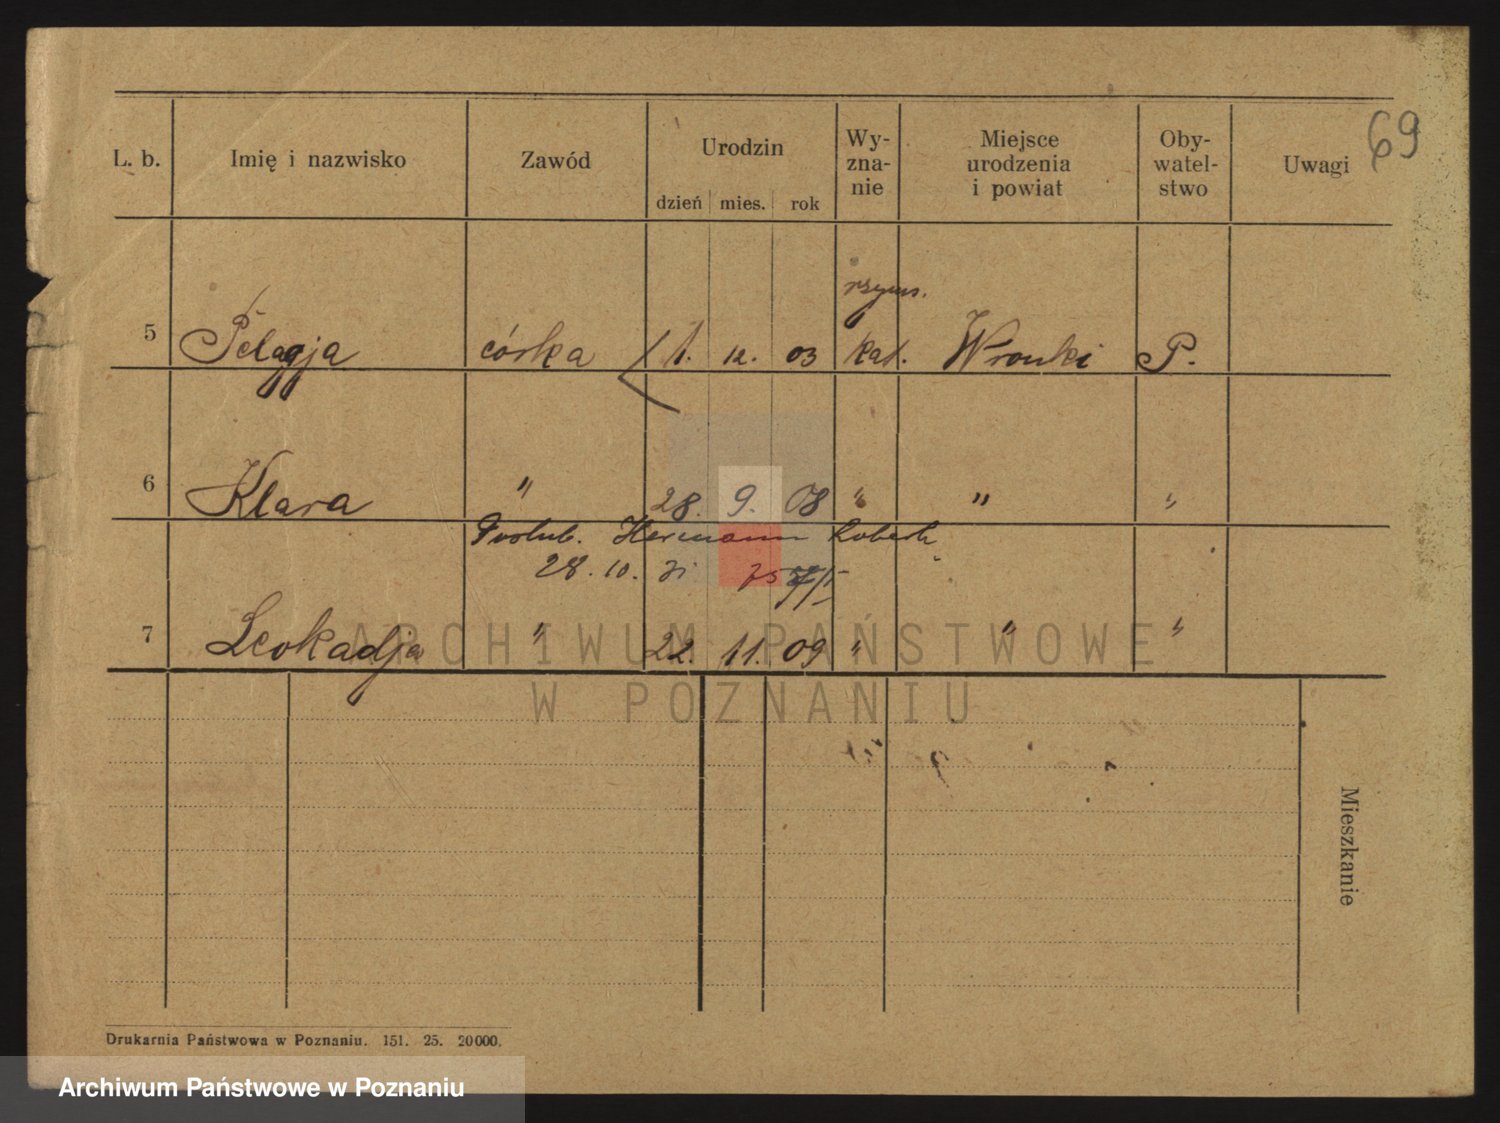 69
L. b. Imię i nazwisko Zawód Urodzin dzień mies. rok Wy-zna-nie Miejsce urodzenia i powiat Oby-watel-stwo Uwagi
rzym.
5 Pelagja córka 1. 12. 03 kat. Wronki P.
6 Klara " 28. 9. 08 " " "
Poślub. Hermann
28. 10. 31
7 Leokadja " 22. 11. 09 " " "
ARCHIWUM PAŃSTWOWE
W POZNANIU
Mieszkanie
Drukarnia Państwowa w Poznaniu. 151. 25. 20000.
Archiwum Państwowe w Poznaniu